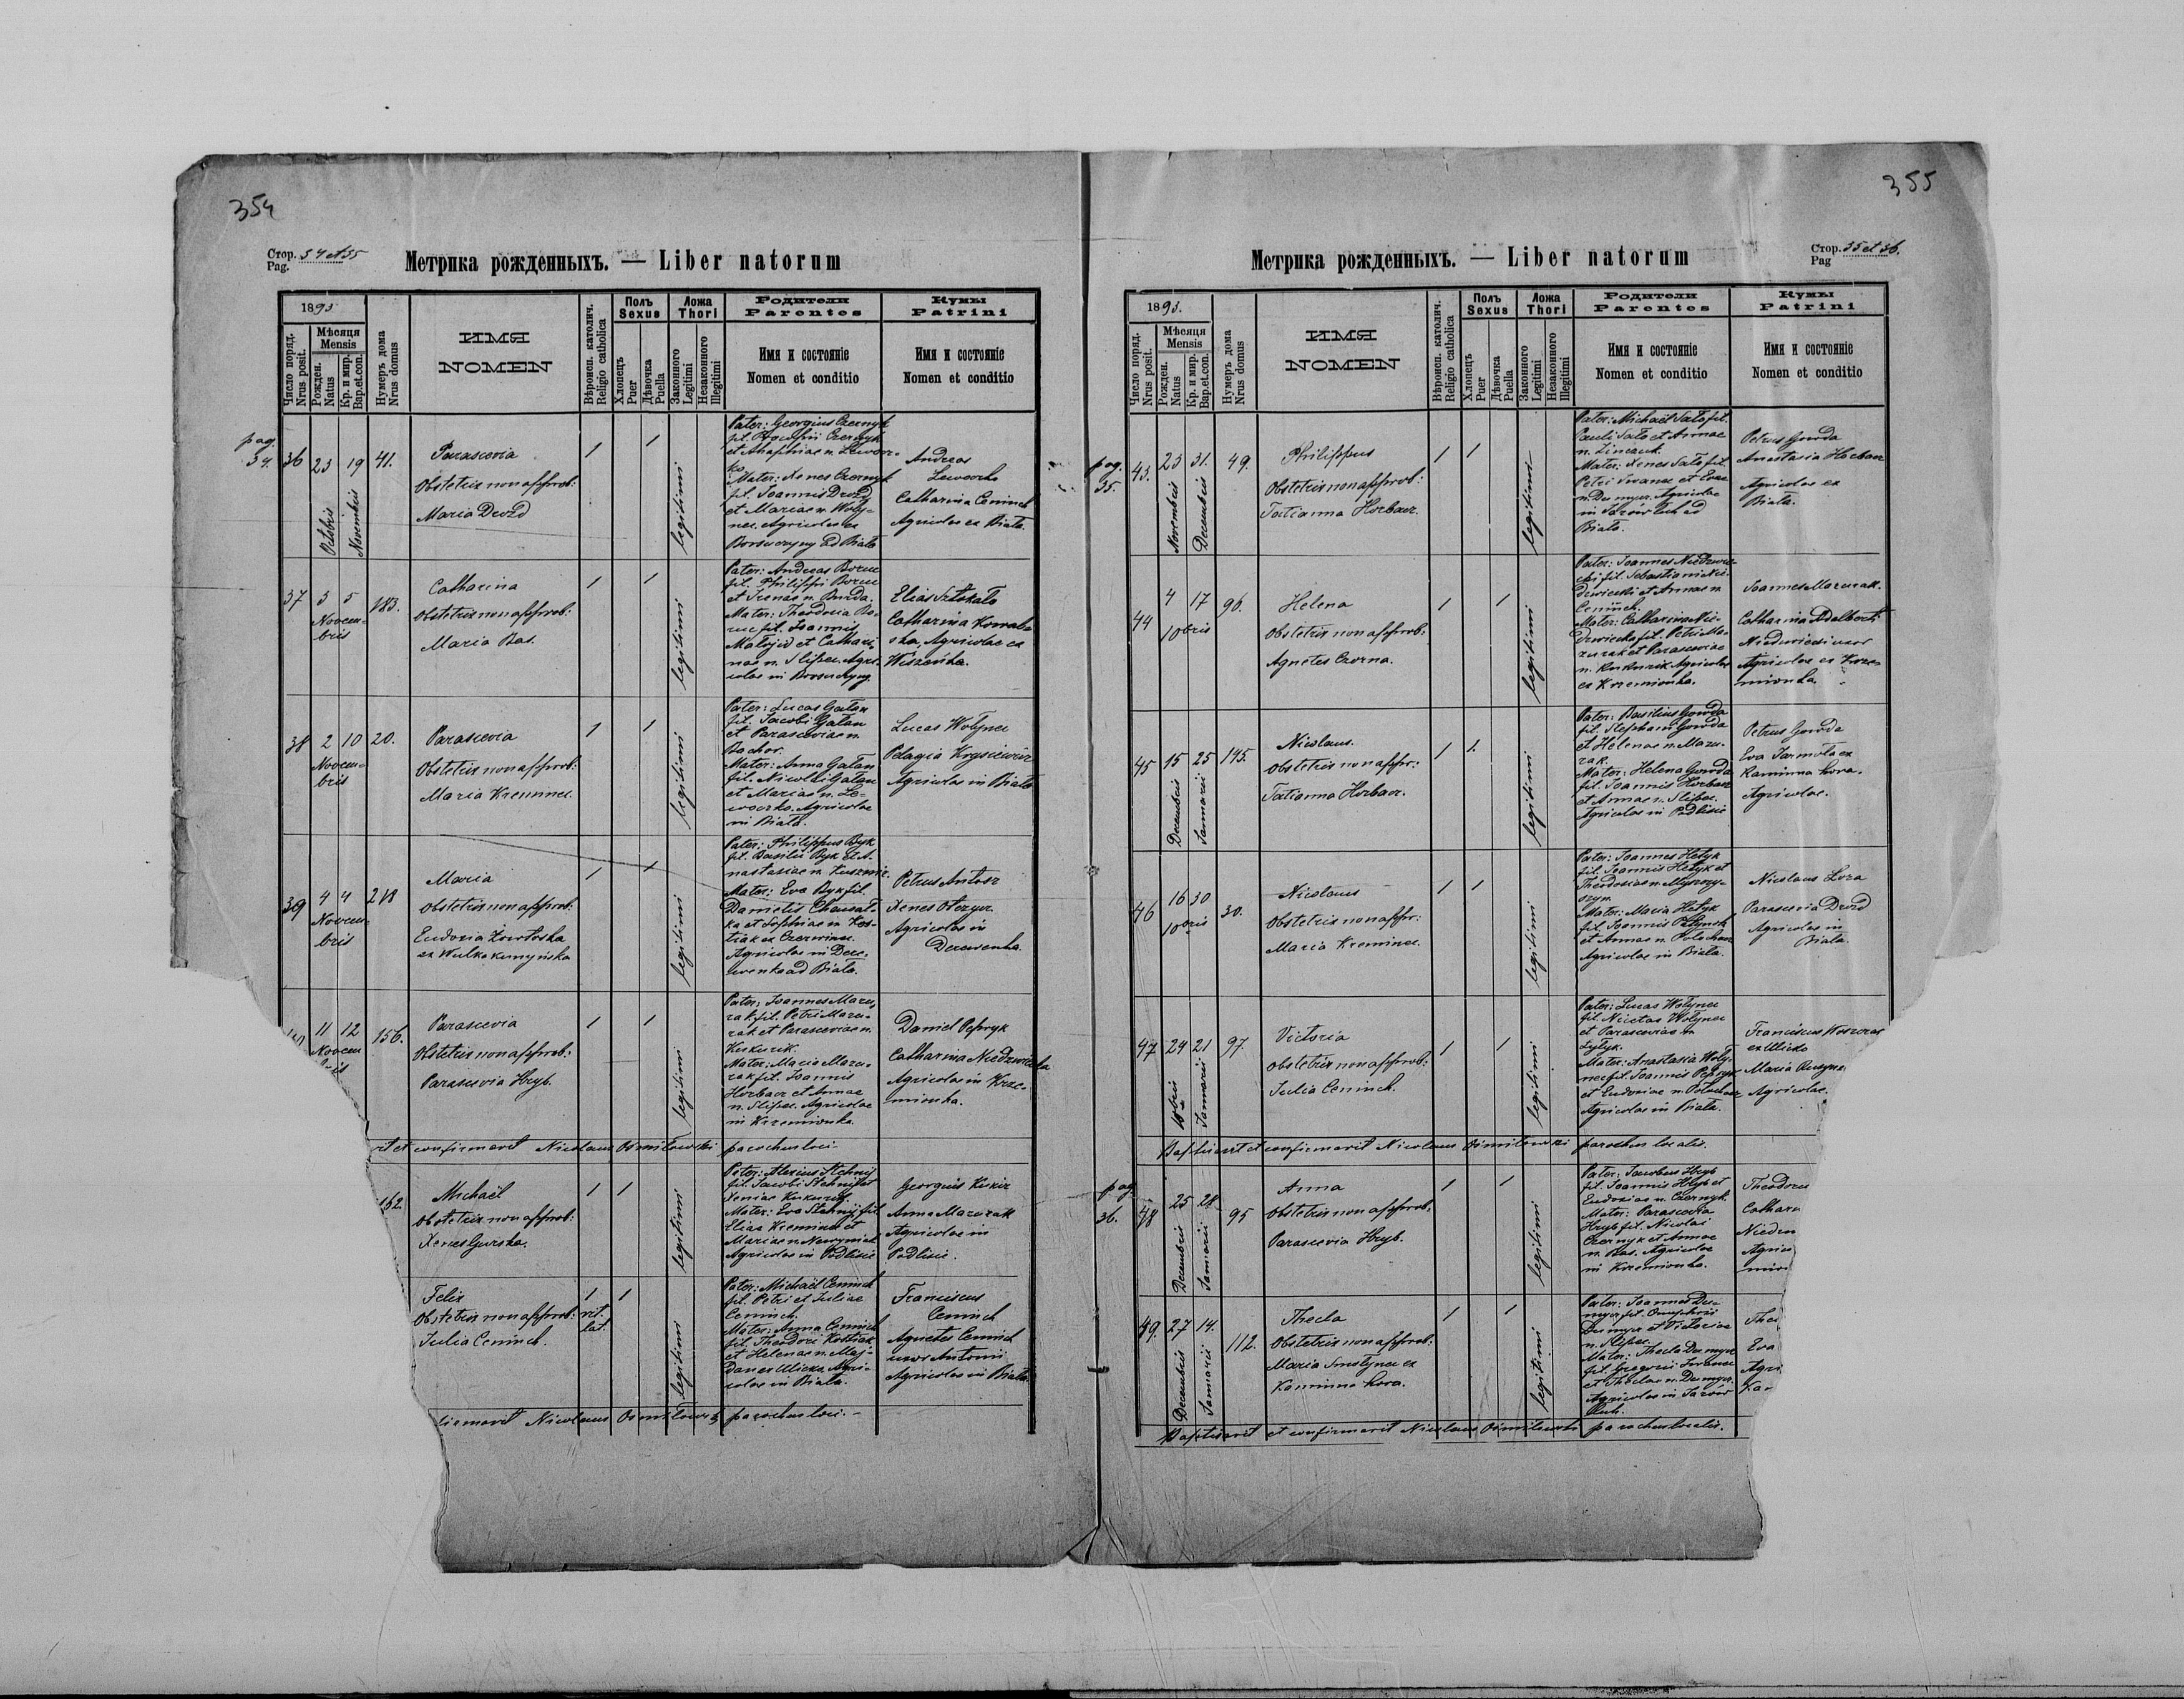 354
Стор. 34 et 35
Pag.
Метрика рожденныхъ. — Liber natorum
1893
Число поряд.
Nrus posit.
Мѣсяця
Mensis
Рожден.
Natus
Кр. и мир.
Bap.et.con.
Нумеръ дома
Nrus domus
ИМЯ
NOMEN
Вѣроисп. католич.
Religio catholica
Полъ
Sexus
Хлопецъ
Puer
Дѣвочка
Puella
Ложа
Thori
Законного
Legitimi
Незаконного
Illegitimi
Родители
Parentes
Имя и состояніе
Nomen et conditio
Кумы
Patrini
Имя и состояніе
Nomen et conditio
pag.
34.
36 23 19 41.
Octobris
Novembris
Parascevia
Obstetrix non approb:
Maria Drozd
1 1
legitimi
Pater: Georgius Czernyk
fil. Czernyk
et Ahaphiae n. Lewoc-
ko
Mater: Xenes Czernyk
fil. Joannis Drozd
et Mariae n. Woły-
nec. Agricolae ex
ad Biała
Andreas
Lewocko
Catharina Ceminch
Agricolae ex Biała.
37 3 5 183.
Novem-
bris
Catharina
Obstetrix non approb:
Maria Bas.
1 1
legitimi
Pater: Andreas
fil. Philippi
et Irenae n. Burda.
Mater: Theodosia
fil. Joannis
et Cathari-
nae n. Slipec. Agri-
colae in
Elias
Catharina Kowals-
ka, Agricolae ex
38 2 10 20.
Novem-
bris
Parascevia
Obstetrix non approb:
Maria Kreminec.
1 1
legitimi
Pater: Lucas Gałan
fil. Jacobi Gałan
et Parasceviae n.
Bochor.
Mater: Anna Gałan
fil. Nicolai Gałan
et Mariae n. Le-
wocko. Agricolae
in Biała.
Lucas Wołynec
Pelagia
Agricolae in Biała
39 4 4 218
Novem-
bris
Maria
Obstetrix non approb:
Eudoxia
ex Wulka
1 1
legitimi
Pater: Philippus Byk
fil. Basilii Byk et A-
nastasiae n.
Mater: Eva Byk fil.
Danielis
ka et Sophiae n. Kos-
tiak ex
Agricolae in Dere-
wenka ad Biała.
Petrus Antosz
Xenes
Agricolae in
Derewenka.
11 12 156.
Novem
Parascevia
Obstetrix non approb:
Parascevia Hryb.
1 1
legitimi
Pater: Joannes Mazu-
rak fil. Petri Mazu-
rak et Parasceviae n.
Kukurik.
Mater: Maria Mazu-
rak fil. Joannis
Horbacz et Annae
n. Slipec. Agricolae
in Krzemionka.
Daniel Pepryk
Catharina Niedzwiecka
Agricolae in Krze-
mionka.
et confirmavit Nicolaus Osmiłowski parochus loci.
162.
Michaël
Obstetrix non approb:
Xenes Gurska.
1 1
legitimi
Pater: Alexius Stehnij
fil. Jacobi Stehnij et
Xeniae
Mater: Eva Stehnij fil.
Eliae Kreminec et
Mariae n.
Agricolae in Podlisie
Georgius
Anna Mazurak
Agricolae in
Podlisie.
Felix
Obstetrix non approb:
Julia Ceminch.
1 1
rit.
lat.
legitimi
Pater: Michaël Ceminch
fil. Petri et Juliae
Ceminch.
Mater: Anna Ceminch
fil. Theodori Kostiak
et Helenae n. Maj-
dan ex Ulicko Agri-
colae in Biała.
Franciscus
Ceminch
Agnetes Ceminch
uxor Antonii
Agricolae in Biała.
firmavit Nicolaus Osmiłowski parochus loci.
355
Стор. 35 et 36.
Pag
Метрика рожденныхъ. — Liber natorum
1893.
Число поряд.
Nrus posit.
Мѣсяця
Mensis
Рожден.
Natus
Кр. и мир.
Bap.et.con.
Нумеръ дома
Nrus domus
ИМЯ
NOMEN
Вѣроисп. католич.
Religio catholica
Полъ
Sexus
Хлопецъ
Puer
Дѣвочка
Puella
Ложа
Thori
Законного
Legitimi
Незаконного
Illegitimi
Родители
Parentes
Имя и состояніе
Nomen et conditio
Кумы
Patrini
Имя и состояніе
Nomen et conditio
pag.
35.
43. 23 31. 49.
Novembris
Decembris
Philippus
Obstetrix non approb:
Tatianna Horbacz.
1 1
legitimi
Pater: Michaël Sało fil.
Pauli Sało et Annae
n.
Mater: Xenes Sało fil.
Petri Iwanec et Evae
n. Dumycz. Agricolae
in ad
Biała.
Petrus Gowda
Anastasia Horbacz
Agricolae ex
Biała.
44 4 17 96.
10bris
Helena
Obstetrix non approb:
Agnetes Czorna.
1 1
legitimi
Pater: Joannes Niedzwie-
cki fil. Sebastiani Nie-
dzwiecki et Annae n.
Ceminch.
Mater: Catharina Nie-
dzwiecka fil. Petri Ma-
zurak et Parasceviae
n. Kukurik Agricolae
ex Krzemionka.
Joannes Mazurak.
Catharina Adalberti
Niedzwiecki uxor
Agricolae ex Krze-
mionka.
45 15 25 145.
Decembris
Januarii
Nicolaus.
Obstetrix non appr:
Tatianna Horbacz.
1 1.
legitimi
Pater: Basilius Gowda
fil. Stephani Gowda
et Helenae n. Mazu-
rak.
Mater: Helena Gowda
fil. Joannis Horbacz
et Annae n. Slipec.
Agricolae in Podlisie
Petrus Gowda
Eva Jarmoła ex
Kaminna hora.
Agricolae.
46 16 30 30.
10bris
Nicolaus
Obstetrix non appr:
Maria Kreminec.
1 1
legitimi
Pater: Joannes Hetyk
fil. Joannis Hetyk et
Theodosiae n.
Mater: Maria Hetyk
fil. Joannis
et Annae n.
Agricolae in Biała.
Nicolaus Loza
Parascevia Drozd
Agricolae in
Biała.
47 24 21 97.
Januarii
Victoria
Obstetrix non approb:
Julia Ceminch.
1 1
legitimi
Pater: Lucas Wołynec
fil. Nicetae Wołynec
et Parasceviae n.
Mater: Anastasia Woły-
nec fil. Joannis Pepryk
et Eudoxiae n.
Agricolae in Biała.
Franciscus
ex Ulicko
Maria
Agricolae.
Baptisavit et confirmavit Nicolaus Osmiłowski parochus localis.
pag.
36.
48 25 28 95
Decembris
Januarii
Anna
Obstetrix non approb:
Parascevia Hryb.
1 1
legitimi
Pater: Jacobus Hryb
fil. Joannis Hryb et
Eudoxiae n. Czernyk.
Mater: Parascevia
Hryb fil. Nicolai
Czernyk et Annae
n. Bas. Agricolae
in Krzemionka.
Theodorus
Cathari
Niedzw
Agrico
mion
49. 27 14. 112.
Decembris
Januarii
Thecla
Obstetrix non approb:
Maria Smolynec ex
Kaminna hora.
1 1
legitimi
Pater: Joannes Du-
mycz fil. Onuphrii
Dumycz et Victoriae
n. Slipec.
Mater: Thecla Dumycz
fil. Gregorii Iwanec
et Theclae n. Dumycz.
Agricolae in
Theo
Eva
Agri
Ka
Baptisavit et confirmavit Nicolaus Osmiłowski parochus localis.